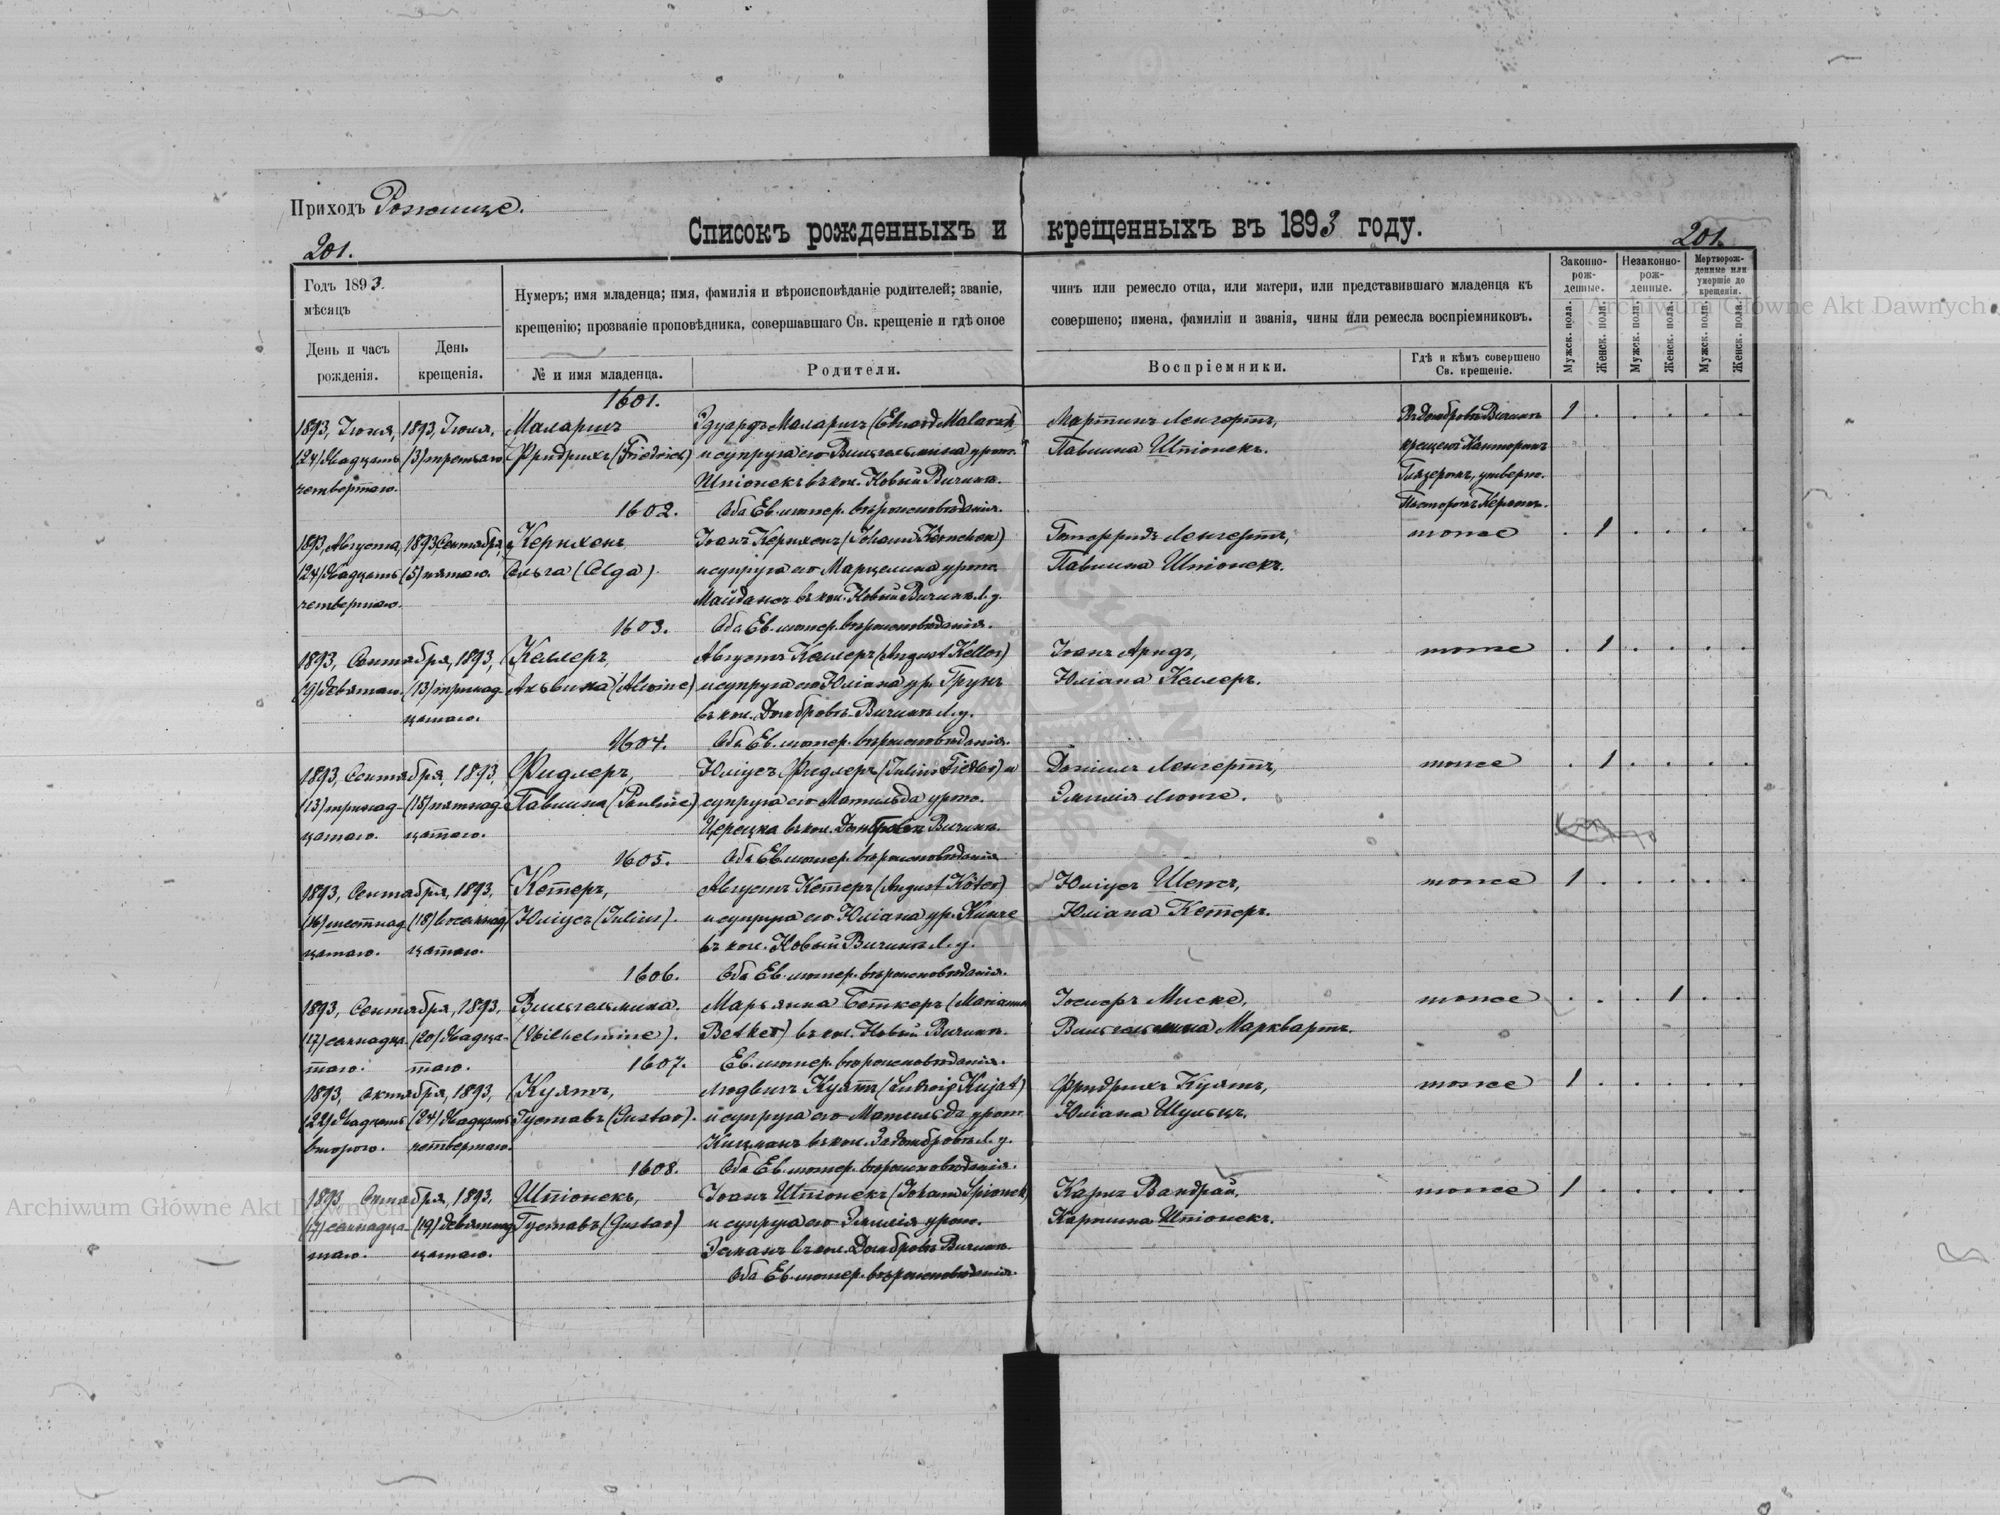 Приходъ Рожище.
Списокъ рожденныхъ и крещенныхъ въ 1893 году.
201.
201.
Годъ 1893.
мѣсяцъ
День и часъ рожденія.
День крещенія.
Нумеръ; имя младенца; имя, фамилія и вѣроисповѣданіе родителей; званіе, чинъ или ремесло отца, или матери, или представившаго младенца къ
крещенію; прозваніе проповѣдника, совершавшаго Св. крещеніе и гдѣ оное совершено; имена, фамиліи и званія, чины или ремесла воспріемниковъ.
№ и имя младенца.
Родители.
Воспріемники.
Гдѣ и кѣмъ совершено Св. крещеніе.
Законно-рож-денные.
Незаконно-рож-денные.
Мертворож-денные или умершіе до крещенія.
Мужск. пола.
Женск. пола.
Мужск. пола.
Женск. пола.
Мужск. пола.
Женск. пола.
1601.
1893, Іюня, 1893, Іюля, Малариш Эдуардъ Малариш (Eduard Malarsch) Мартинъ Ленгертъ, 1
(24) двадцать (3) третьяго Фридрихъ (Friedrich) и супруга его Вильгельмина урож. Павлина Штіонекъ. крещено Канторомъ
четвертаго. Штіонекъ въ кол. Новый Вичинъ.
1602. Оба Ев. лютер. вѣроисповѣданія. Пасторомъ Кермъ.
1893, Августа, 1893 Сентября, Кернхенъ Іоанъ Кернхенъ (Johann Körnchen) Готфридъ Ленгертъ, тоже 1
(24) двадцать (5) пятаго. Ольга (Olga). и супруга его Марцелина урож. Павлина Штіонекъ.
четвертаго. Майданъ въ кол. Новый Вичинъ Л. у.
1603. Оба Ев. лютер. вѣроисповѣданія.
1893, Сентября, 1893, Келлеръ, Августъ Келлеръ (August Keller) Іоанъ Арндъ, тоже 1
(9) девятаго. (13) тринад- Альвина (Alwine) и супруга его Юліана ур. Грунъ Юліана Келлеръ.
цатаго. въ кол. Домбровъ-Вичинъ Л. у.
1604. Оба Ев. лютер. вѣроисповѣданія.
1893, Сентября, 1893, Фидлеръ, Юліусъ Фидлеръ (Julius Fiedler) и Даніилъ Ленгертъ, тоже 1
(13) тринад- (15) пятнад- Павлина (Pauline) супруга его Матильда урож. Эмилія
цатаго. цатаго. въ кол. Домбровъ Вичинъ.
1605. Оба Ев. лютер. вѣроисповѣданія
1893, Сентября, 1893, Кетеръ, Августъ Кетеръ (August Köter) Юліусъ тоже 1
(16) шестнад- (18) восемнад- Юліусъ (Julius). и супруга его Юліана ур. Юліана Кетеръ.
цатаго. цатаго. въ кол. Новый Вичинъ Л. у.
1606. Оба Ев. лютер. вѣроисповѣданія.
1893, Сентября, 1893, Вильгельмина. Марьянна Беткеръ (Marianna Іосифъ Миске, тоже 1
(17) семнадца- (20) двадца- (Wilhelmine). Betker) въ кол. Новый Вичинъ. Вильгельмина Марквартъ.
таго. таго. 1607. Ев. лютер. вѣроисповѣданія.
1893, октября, 1893, Куятъ, Людвигъ Куятъ (Ludwig Kujat) Фридрихъ Куятъ, тоже 1
(22) двадцать (24) двадцать Густавъ (Gustav). и супруга его Матильда урож. Юліана Шульцъ.
второго. четвертаго. Кицманъ въ кол. Л. у.
1608. Оба Ев. лютер. вѣроисповѣданія.
1893 1893, Штіонекъ, Іоанъ Штіонекъ (Johann Spionek) Карлъ Вандрай, тоже 1
(17) семнадца- (19) девятнад- Густавъ (Gustav) и супруга его Эмилія урож. Каролина Штіонекъ.
таго. цатаго. въ кол. Домбровъ Вичинъ.
Оба Ев. лютер. вѣроисповѣданія.
Archiwum Główne Akt Dawnych
Archiwum Główne Akt Dawnych